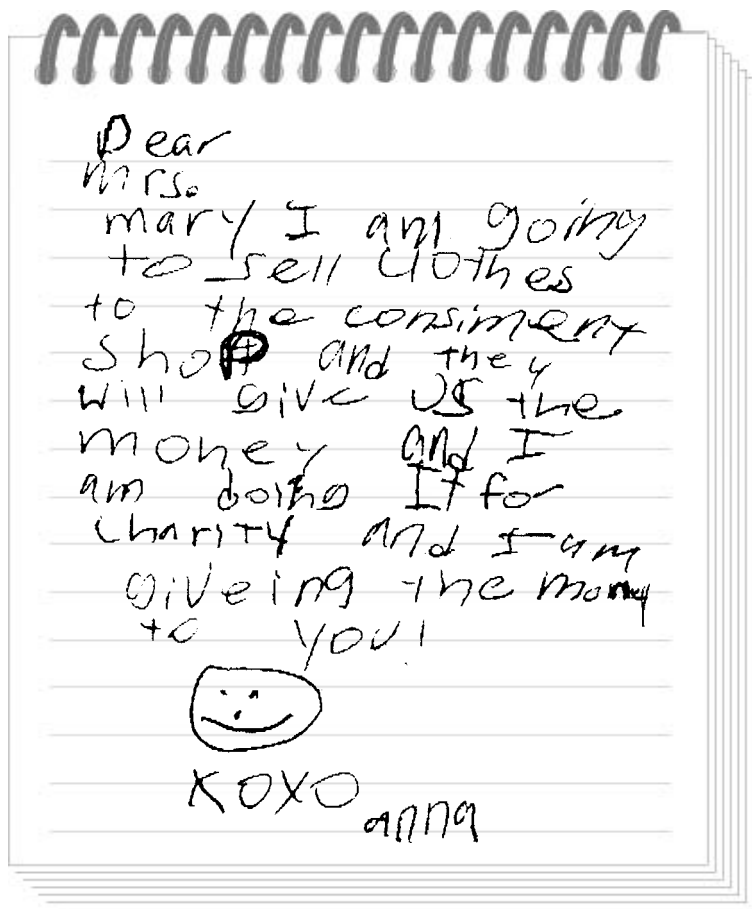 Dear
Mrs.
mary I am going
to sell clothes
to the consiment
shop and they
will give us the
money and I
am doing It for
charity and I am
giveing the money
to you!
XOXO
anna